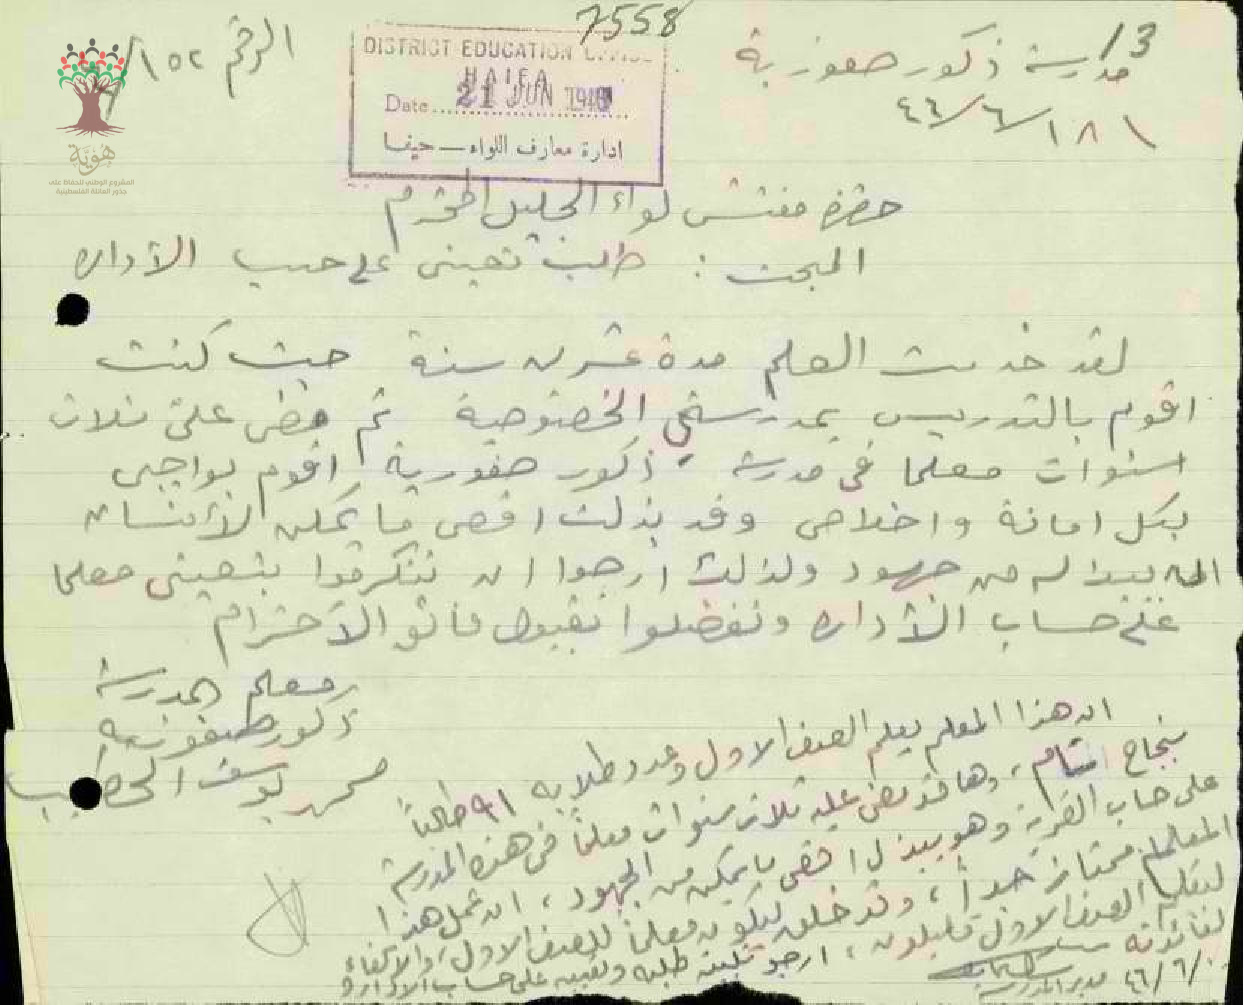 7558
13
الرقم ١٥٢/
DISTRICT EDUCATION OFFICE
HAIFA
Date 21 JUN 1946
ادارة معارف اللواء — حيفا
مدرسة ذكور صفورية
١٨/٦/٤٦
هُوِيَّة
المشروع الوطني للحفاظ على
جذور العائلة الفلسطينية
حضرة مفتش لواء الجليل المحترم
المبحث : طلب تعييني على حساب الادارة
لقد خدمت العلم مدة عشرين سنة حيث كنت
اقوم بالتدريس بمدرستي الخصوصية ثم مضى علي ثلاث
سنوات معلما في مدرسة ذكور صفورية اقوم بواجبي
بكل امانة واخلاص وقد بذلت اقصى ما يمكن لأنسان
ان يبذله من جهود ولذلك ارجوا ان تتكرموا بتعييني معلما
على حساب الأدارة وتفضلوا بقبول فائق الاحترام
معلم مدرسة
ذكور صفورية
محمد يوسف الخطيب
ان هذا المعلم يعلم الصف الاول وعدد طلابه ٩١ طالباً
بنجاح تام، وها قد مضى عليه ثلاث سنوات معلماً في هذه المدرسة
على حساب القرية وهو يبذل اقصى ما يمكن من الجهود، ان عمل هذا
المعلم ممتاز جداً، وقد خلق ليكون معلماً للصف الاول، والاكفاء
لتعليم الصف الاول قليلون، ارجو تلبية طلبه وتعيينه على حساب الادارة
لفائدته
مدير المدرسة